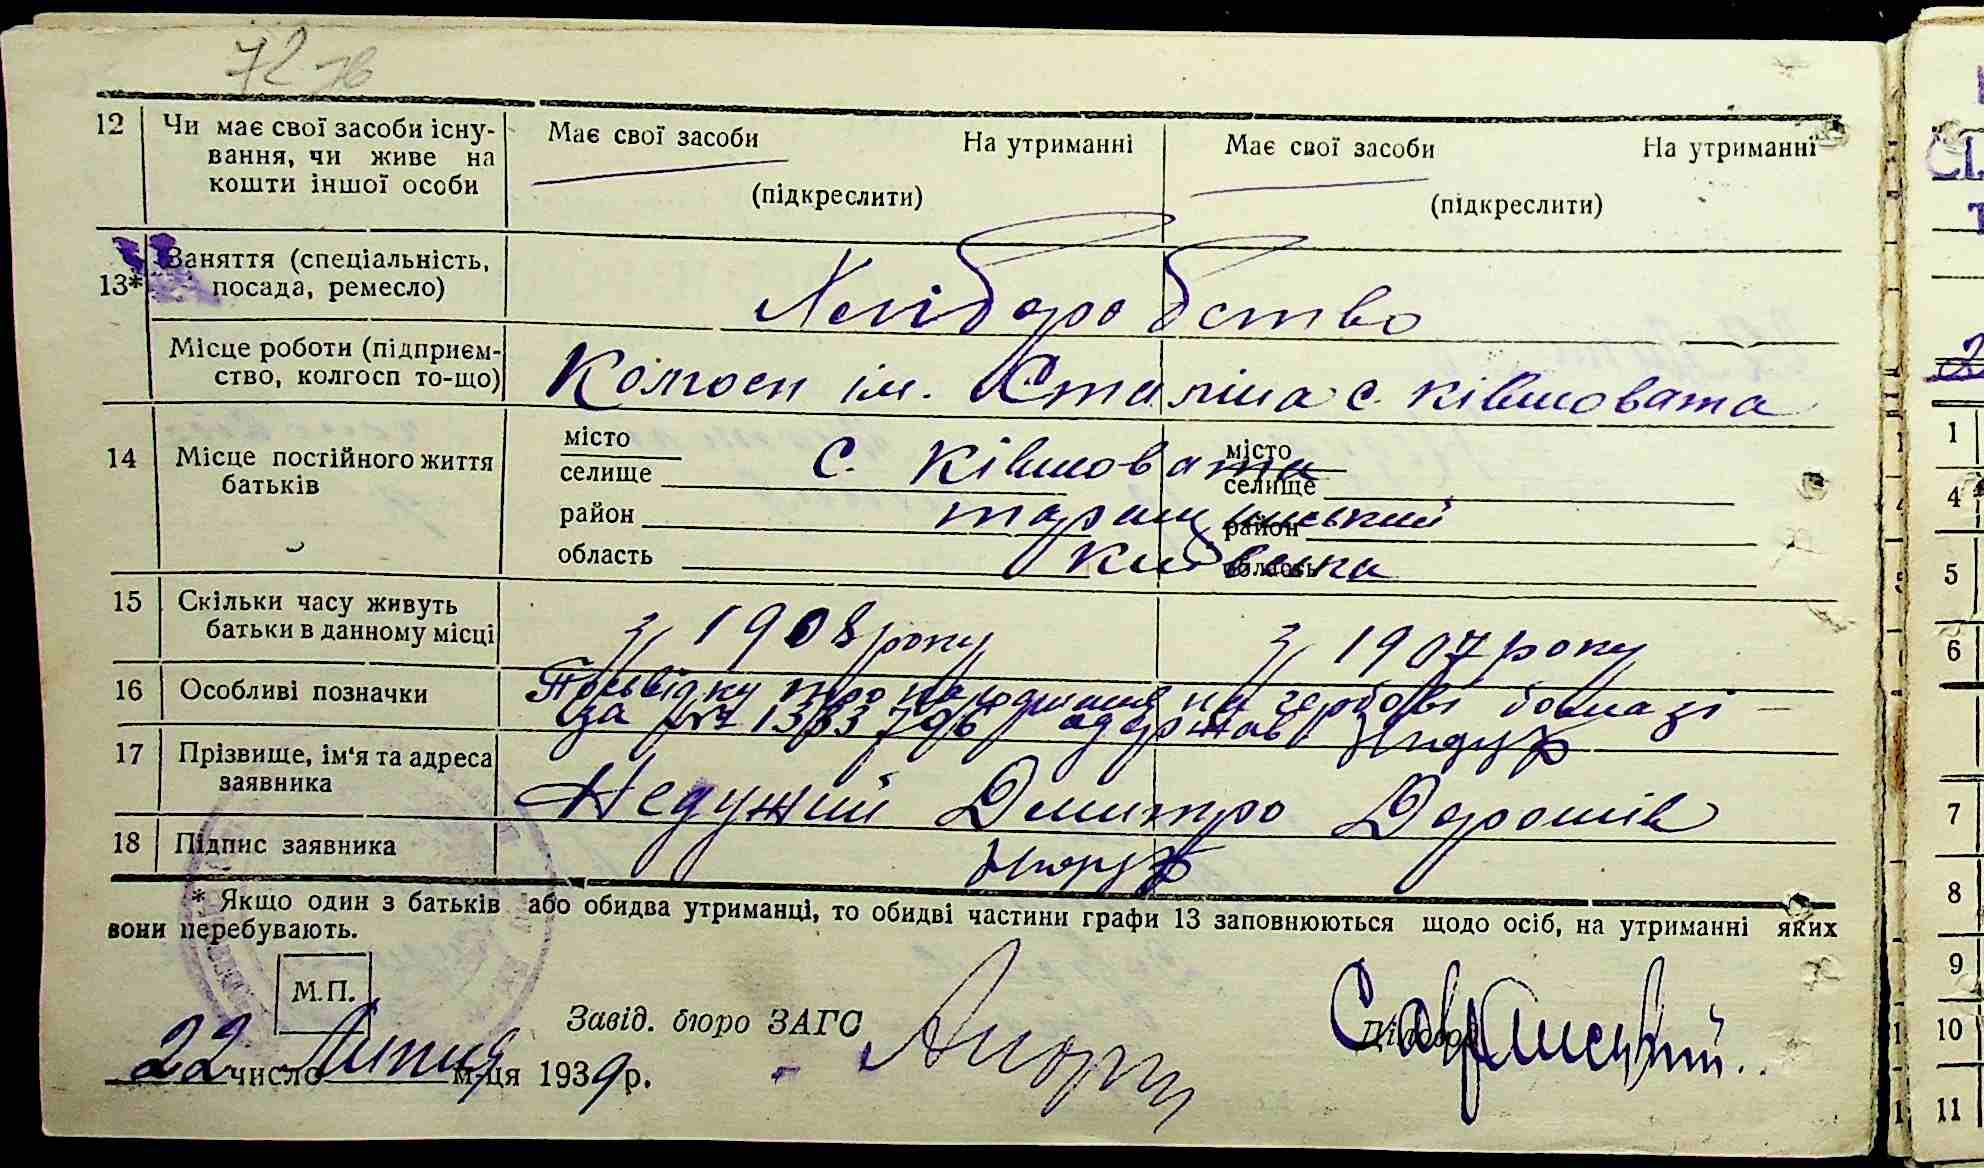 72 зв
12 Чи має свої засоби існу- Має свої засоби На утриманні Має свої засоби На утриманні
вання, чи живе на
кошти іншої особи (підкреслити) (підкреслити)
13* Заняття (спеціальність, Хліборобство
посада, ремесло)
Місце роботи (підприєм- Колгосп ім. Сталіна с. Ківшовата
ство, колгосп то-що)
14 Місце постійного життя місто місто
батьків селище с. Ківшовата селище
район таращанський район
область Київська область
15 Скільки часу живуть з 1908 року з 1907 року
батьки в данному місці
16 Особливі позначки Посвідку про народження на гербові бомазі
за № 1333796 одержав
17 Прізвище, ім'я та адреса Недужий Дмитро Дорошів
заявника
18 Підпис заявника
* Якщо один з батьків або обидва утриманці, то обидві частини графи 13 заповнюються щодо осіб, на утриманні яких
вони перебувають.
М.П.
Завід. бюро ЗАГС Діловод
22 число Липня м-ця 1939 р.
1
4
5
6
7
8
9
10
11